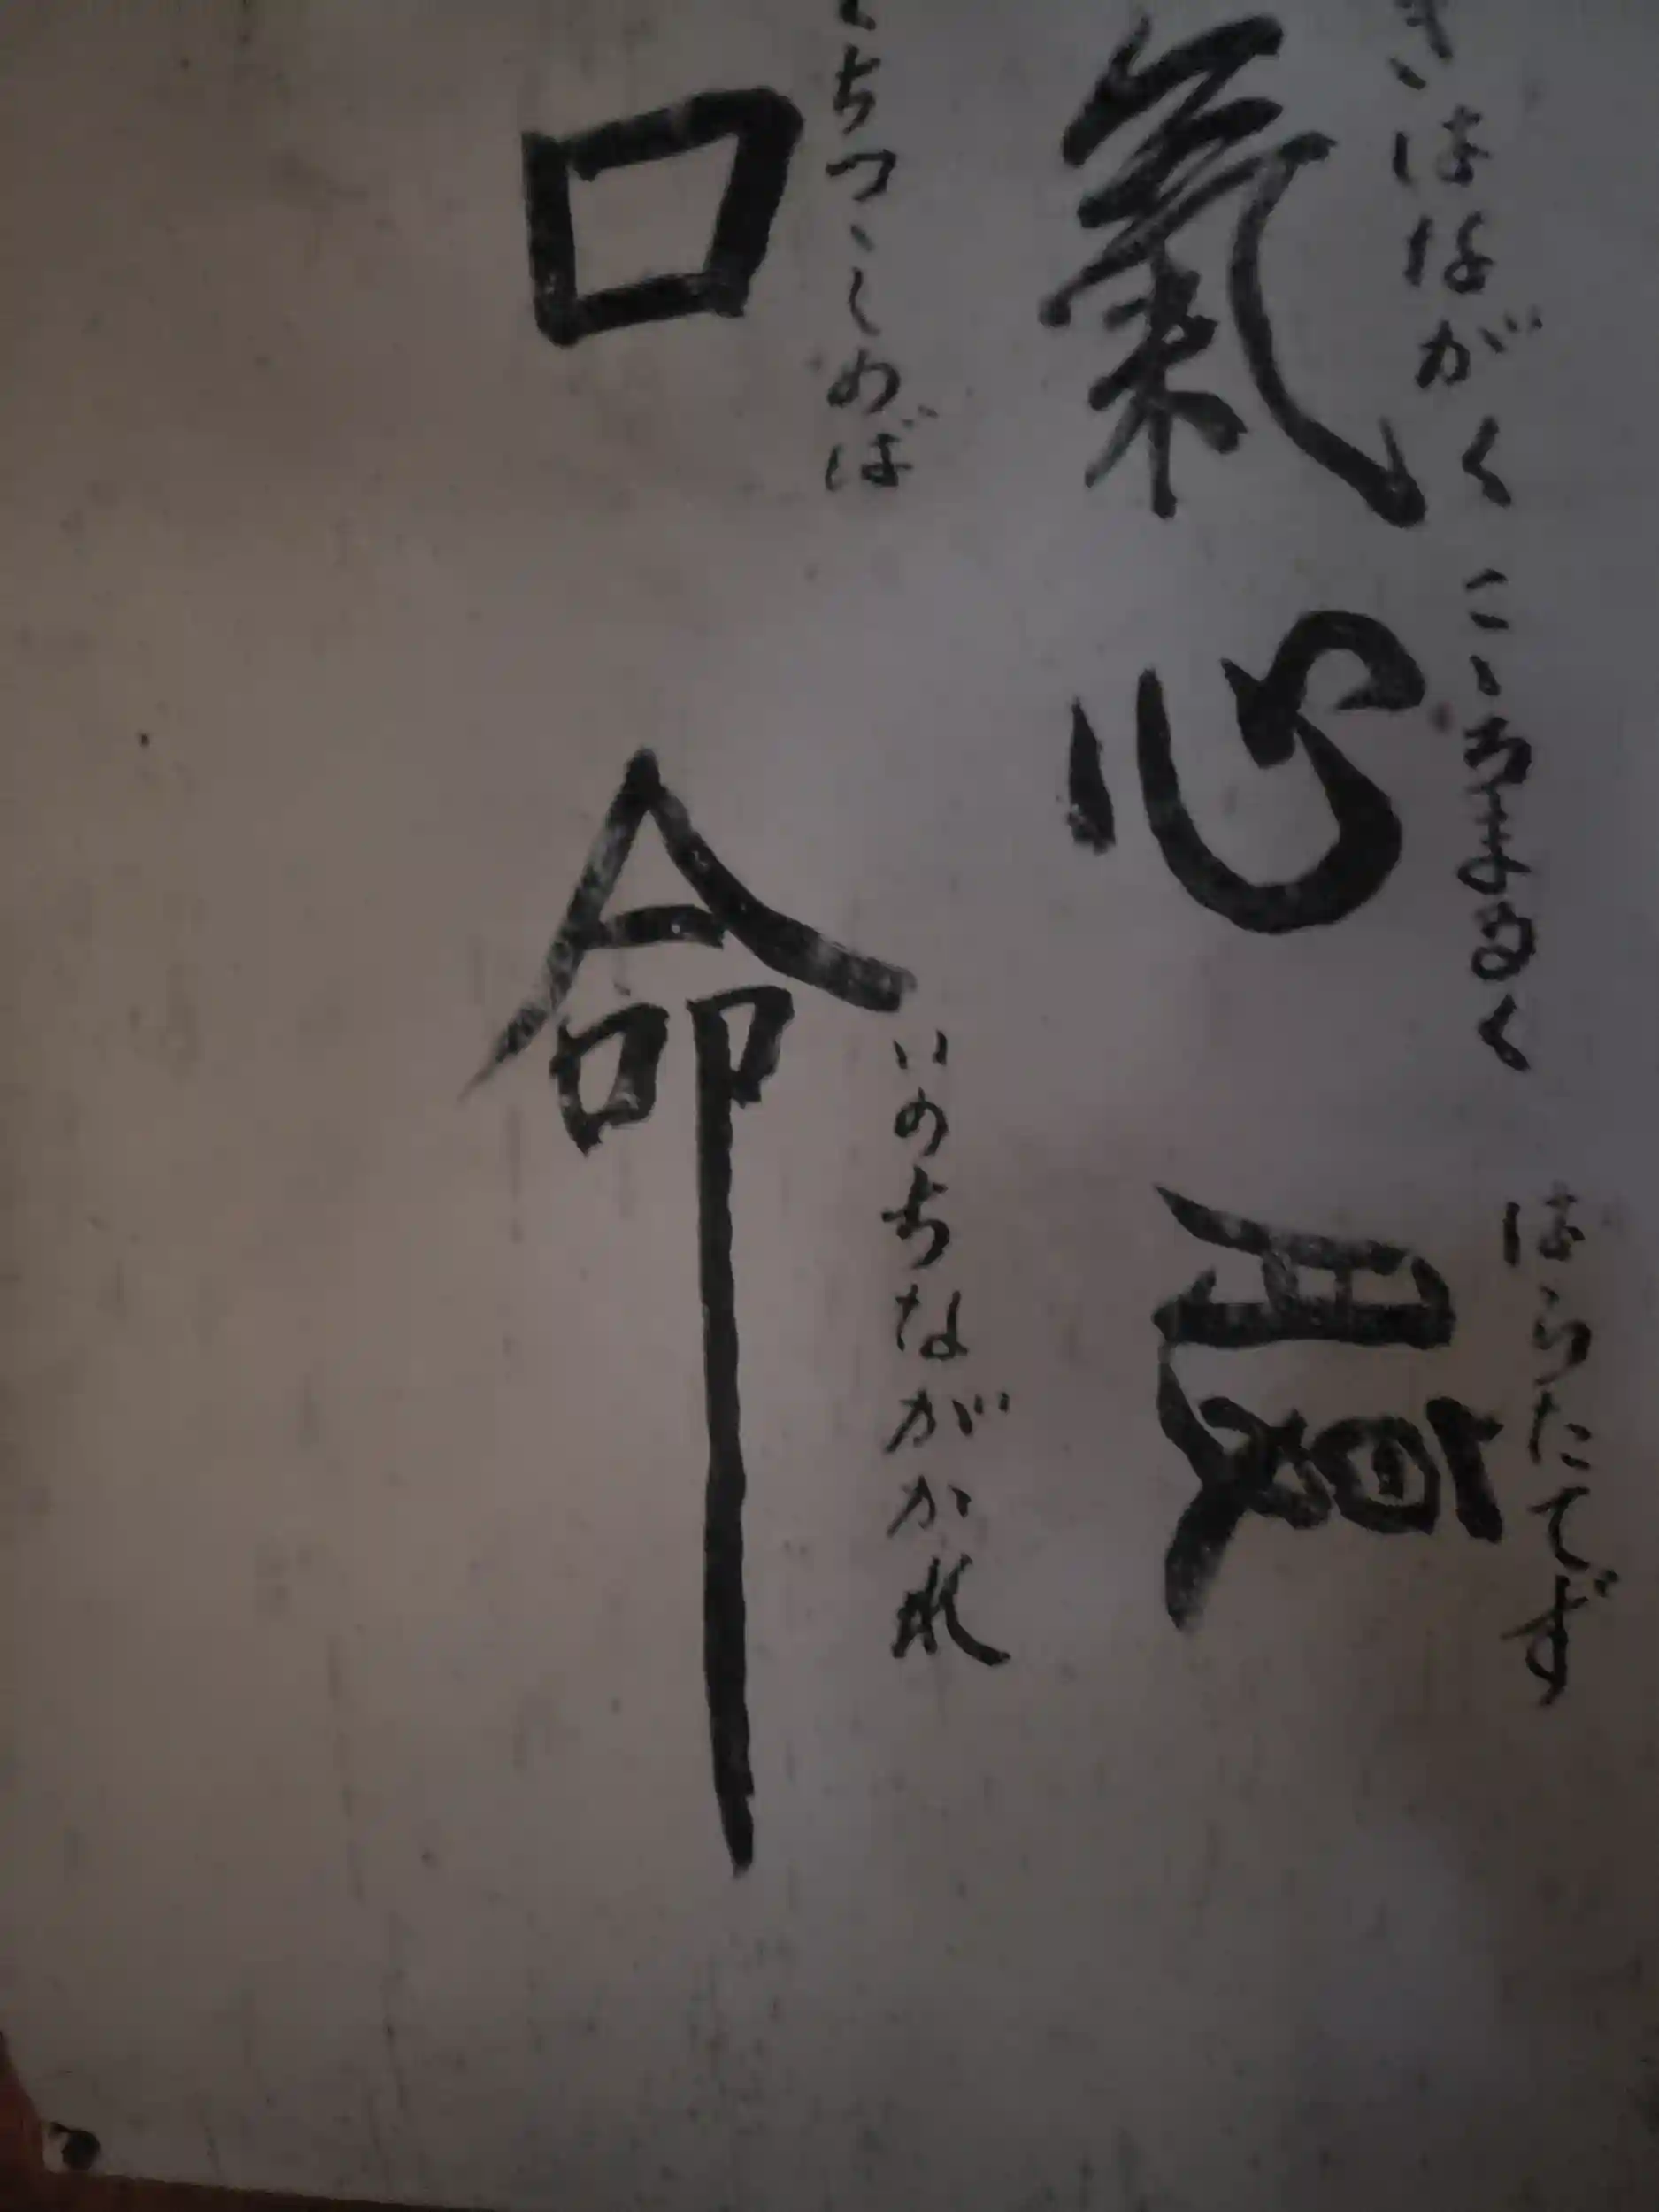 きはながく こゝろまるく はらたてず
氣 心 腹
くちつゝしめば
口
いのちながかれ
命